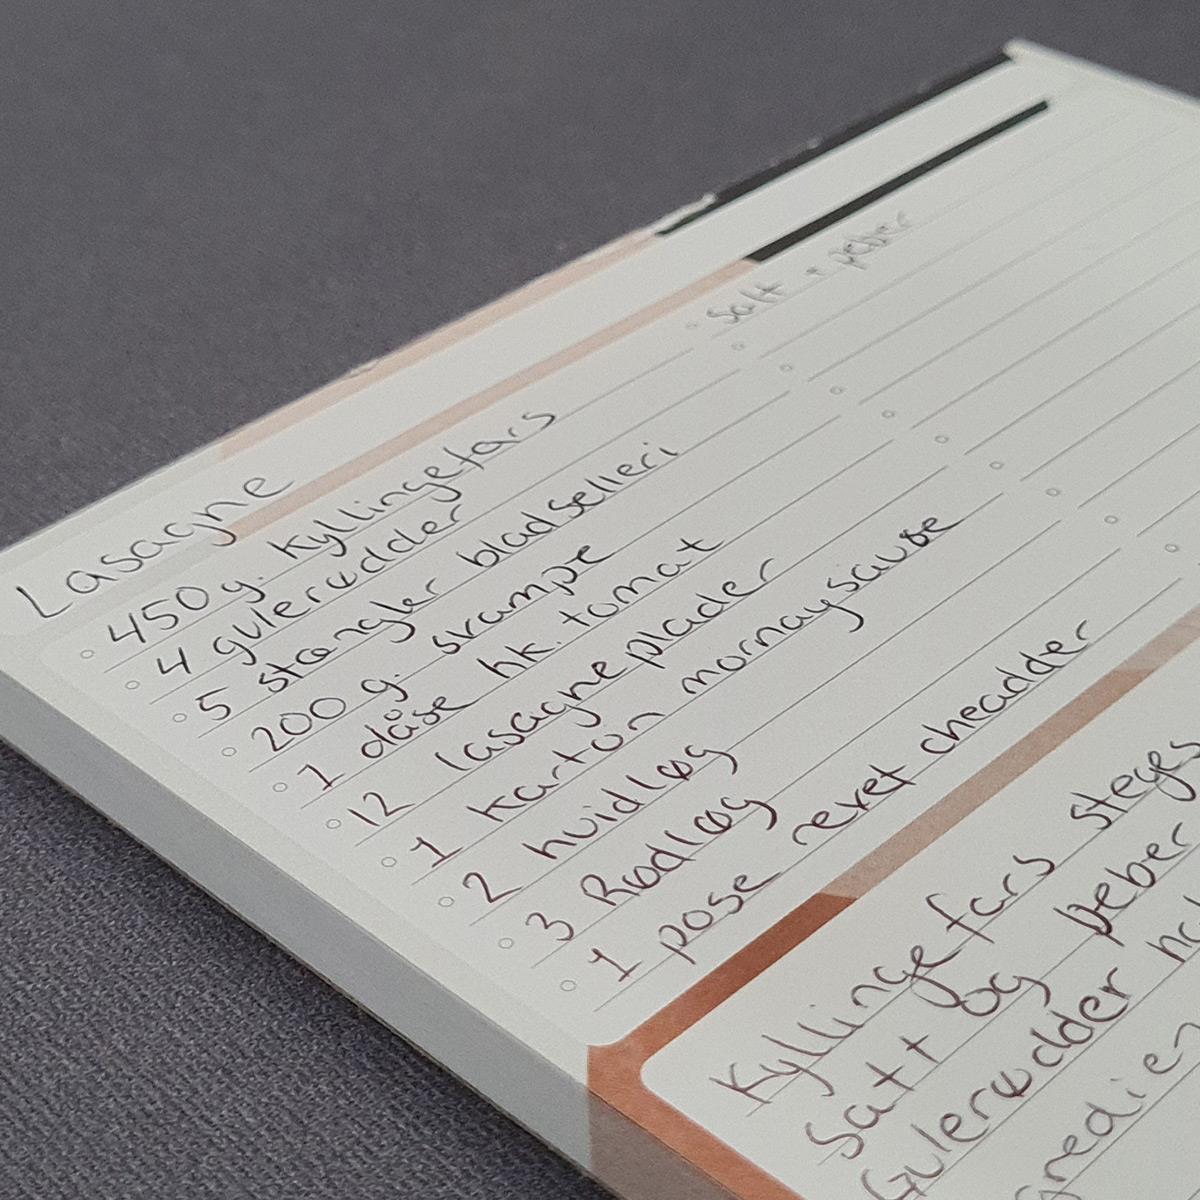 Lasagne
450 g. kyllingefars
4 gulerødder
5 stængler bladselleri
200 g. svampe
1 dåse hk. tomat
12 lasagneplader
1 karton mornaysauce
2 hvidløg
3 Rødløg
1 pose revet cheadder
salt + peber
Kyllingefars steges
salt og peber
Gulerødder